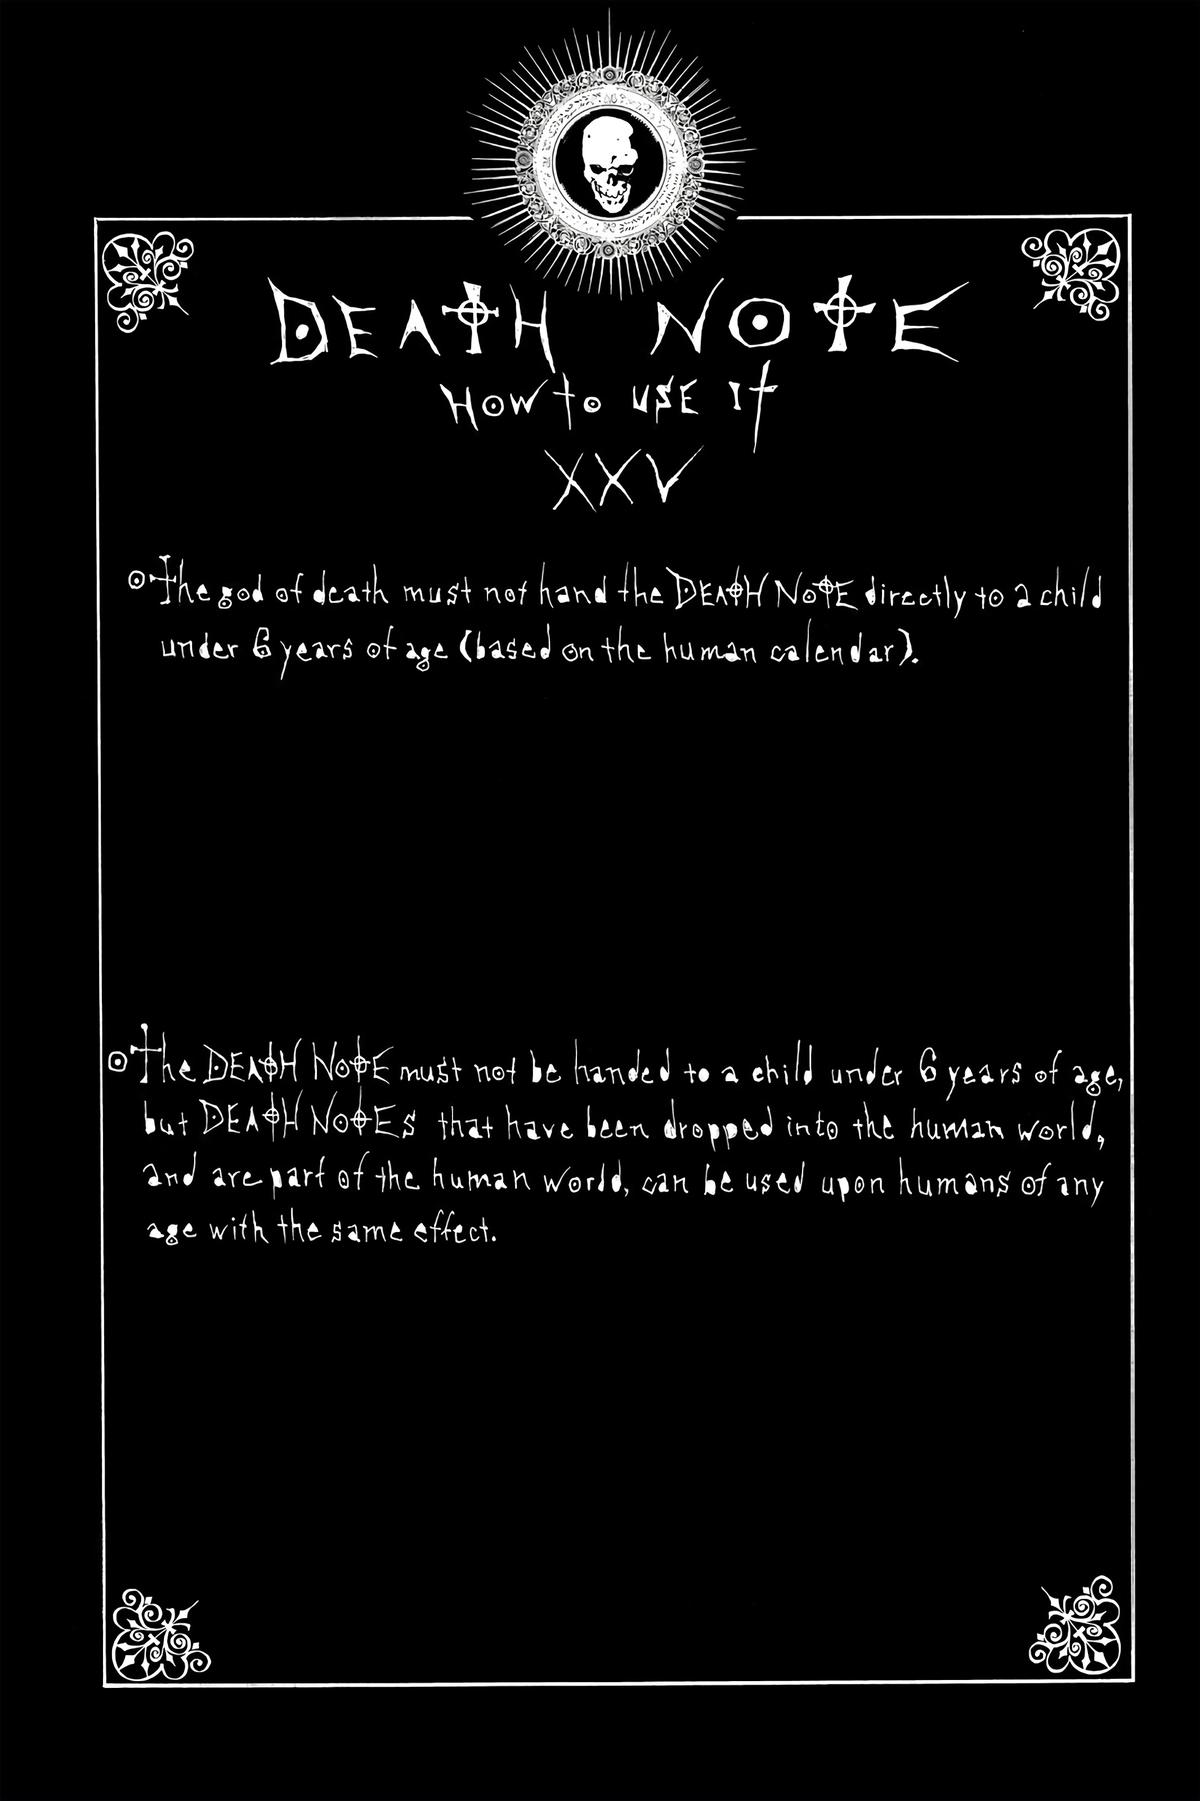 DEATH NOTE
HOW to USE It
XXV
The god of death must not hand the DEATH NOTE directly to a child
under 6 years of age (based on the human calendar).
The DEATH NOTE must not be handed to a child under 6 years of age,
but DEATH NOTES that have been dropped into the human world,
and are part of the human world, can be used upon humans of any
age with the same effect.